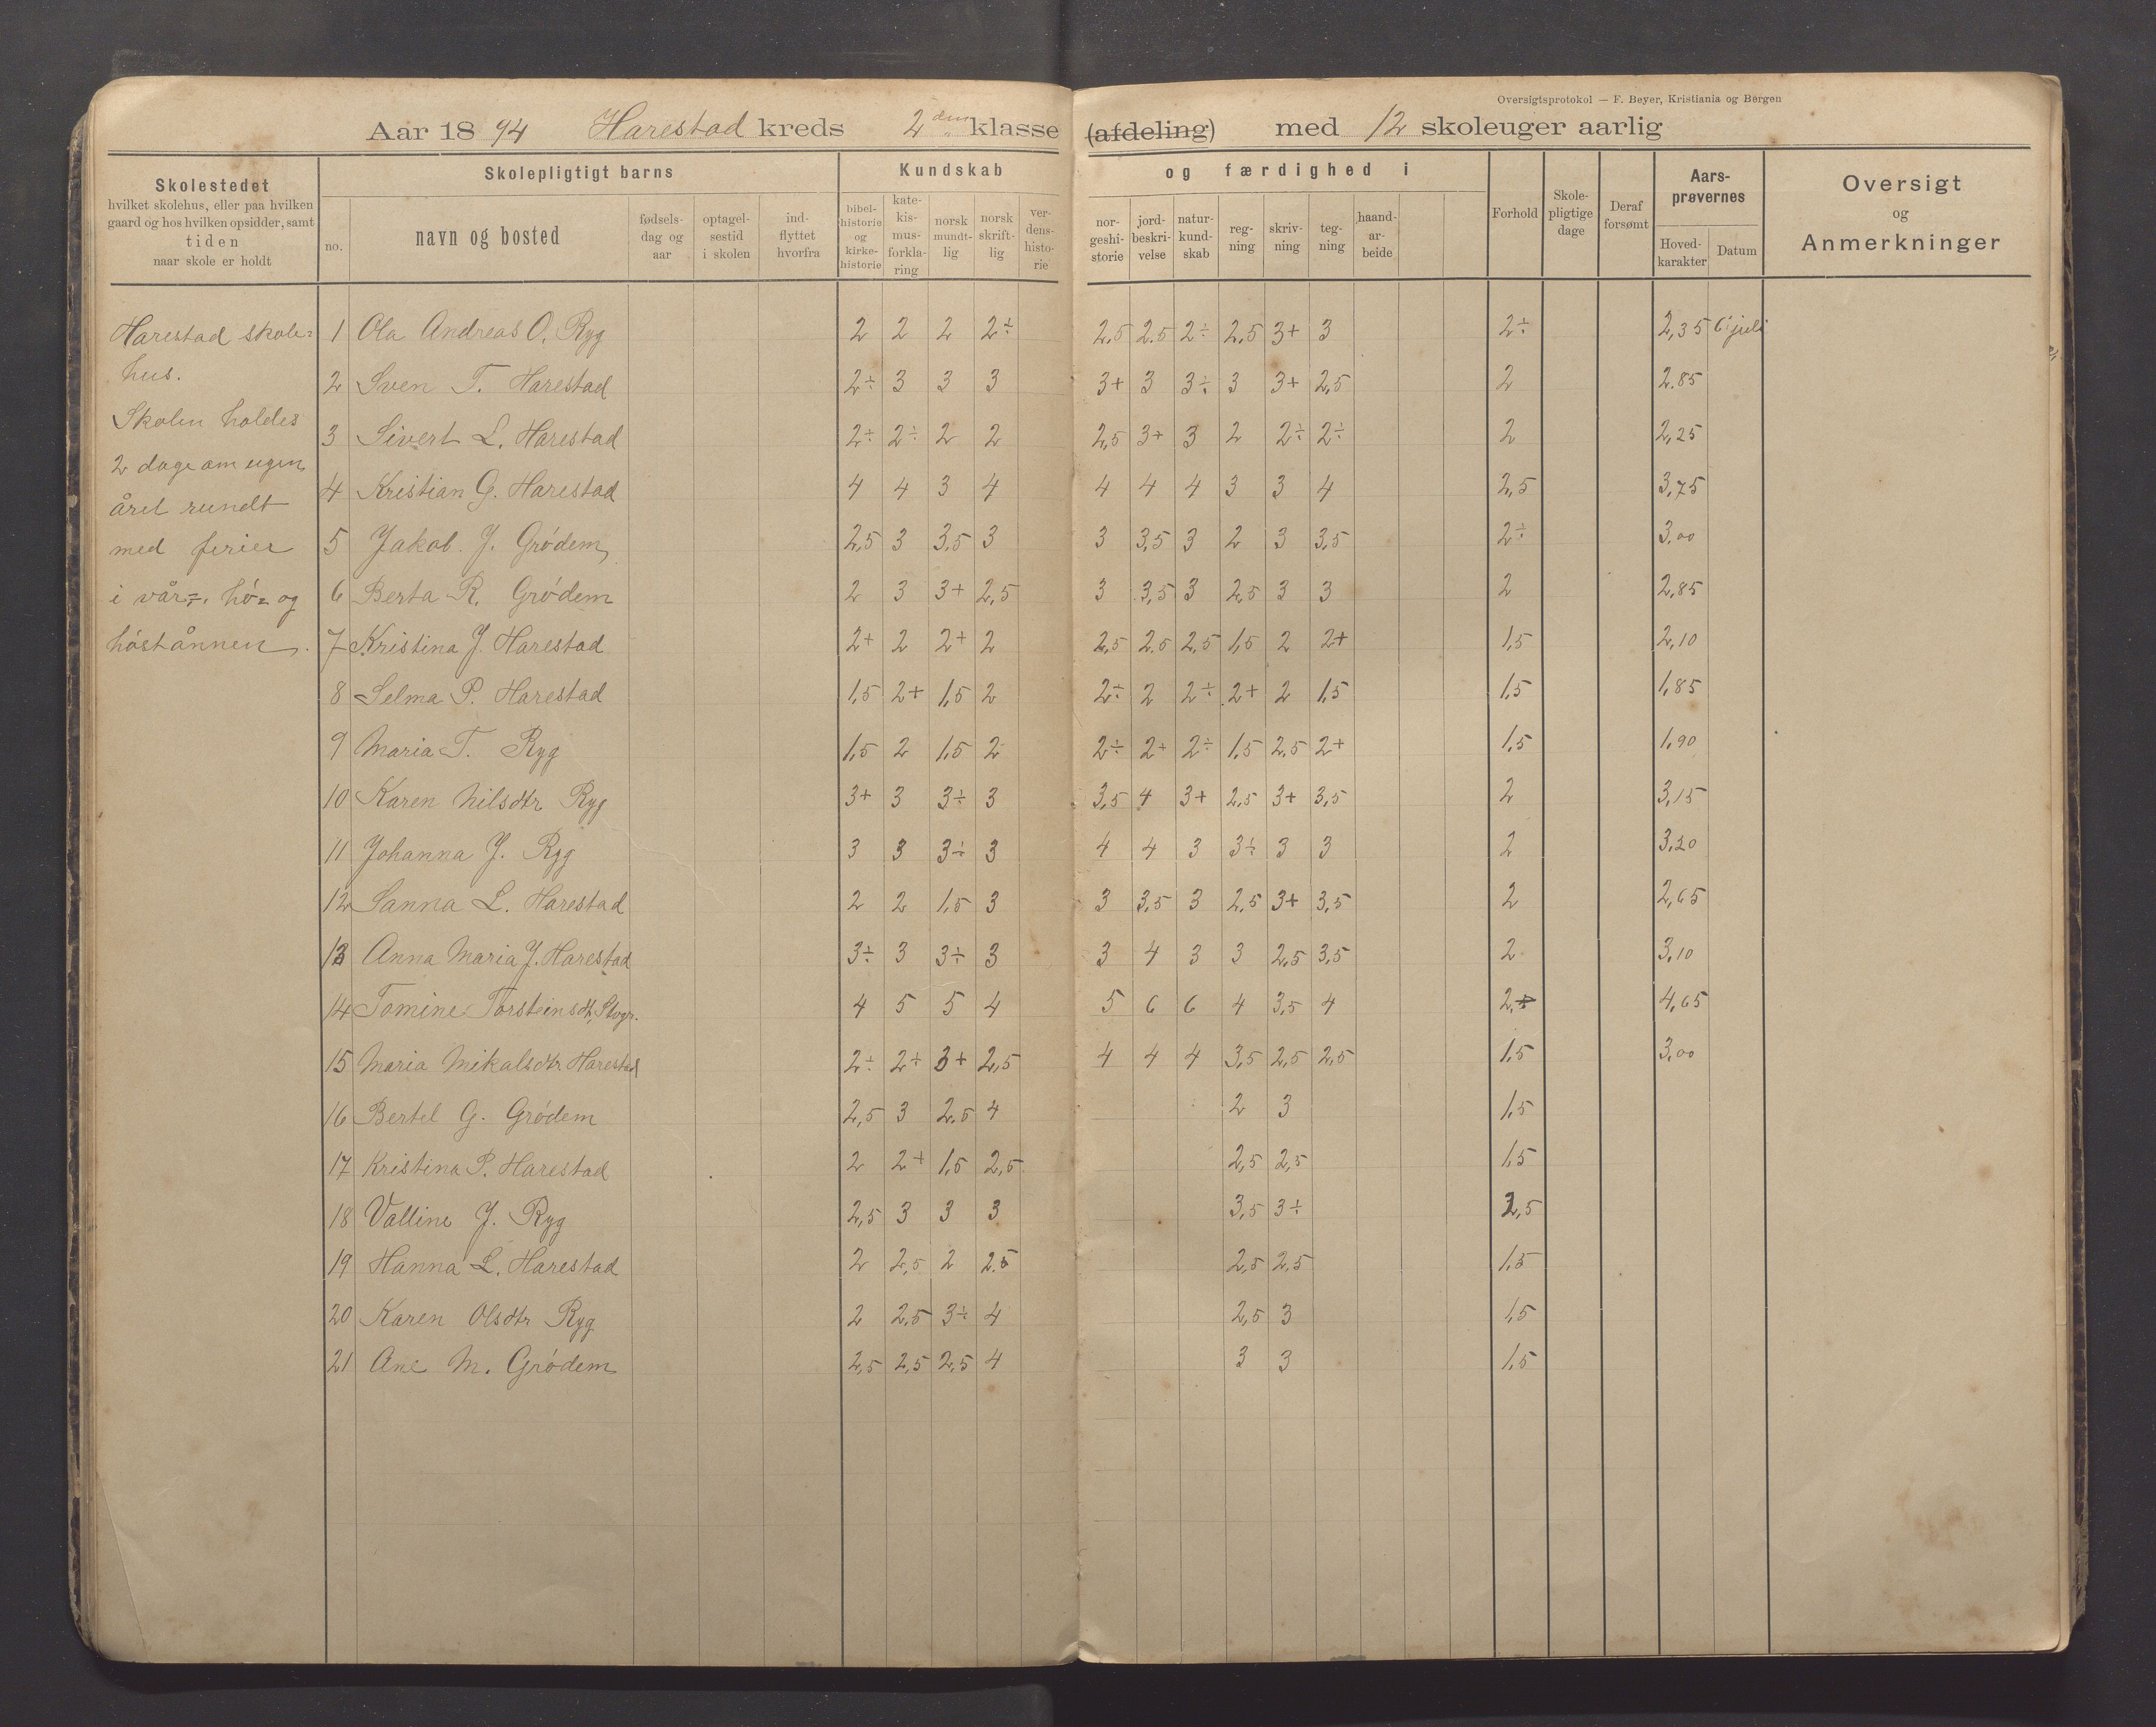 Oversigtsprotokol — F. Beyer, Kristiania og Bergen
Aar 1894 Harestad kreds 2den klasse (afdeling) med 12 skoleuger aarlig
Skolestedet
hvilket skolehus, eller paa hvilken
gaard og hos hvilken opsidder, samt
tiden
naar skole er holdt
Skolepligtigt barns
no.
navn og bosted
fødsels-
dag og
aar
optagel-
sestid
i skolen
ind-
flyttet
hvorfra
Kundskab
bibel-
historie
og
kirke-
historie
kate-
kis-
mus-
forkla-
ring
norsk
mundt-
lig
norsk
skrift-
lig
ver-
dens-
histo-
rie
og færdighed i
nor-
geshi-
storie
jord-
beskri-
velse
natur-
kund-
skab
reg-
ning
skriv-
ning
teg-
ning
haand-
ar-
beide
Forhold
Skole-
pligtige
dage
Deraf
forsømt
Aars-
prøvernes
Hoved-
karakter
Datum
Oversigt
og
Anmerkninger
Harestad skole-
hus.
Skolen holdes
2 dage om ugen
året rundt
med ferier
i vår-, hö- og
höstånnen.
1 Ola Andreas O. Ryg 2 2 2 2÷ 2,5 2.5 2÷ 2,5 3+ 3 2÷ 2,35 6 juli
2 Sven T. Harestad 2÷ 3 3 3 3+ 3 3÷ 3 3+ 2,5 2 2.85
3 Sivert L. Harestad 2÷ 2÷ 2 2 2,5 3+ 3 2 2÷ 2÷ 2 2,25
4 Kristian G. Harestad 4 4 3 4 4 4 4 3 3 4 2,5 3,75
5 Jakob. J. Grödem 2,5 3 3,5 3 3 3,5 3 2 3 3,5 2÷ 3,00
6 Berta R. Grödem 2 3 3+ 2,5 3 3,5 3 2,5 3 3 2 2,85
7 Kristina J. Harestad 2+ 2 2+ 2 2,5 2,5 2,5 1,5 2 2+ 1,5 2,10
8 Selma P. Harestad 1,5 2+ 1,5 2 2÷ 2 2÷ 2+ 2 1,5 1,5 1,85
9 Maria T. Ryg 1,5 2 1,5 2 2÷ 2+ 2÷ 1,5 2,5 2+ 1,5 1,90
10 Karen Nilsdtr Ryg 3+ 3 3÷ 3 3,5 4 3+ 2,5 3+ 3,5 2 3,15
11 Johanna J. Ryg 3 3 3÷ 3 4 4 3 3÷ 3 3 2 3,20
12 Sanna L. Harestad 2 2 1,5 3 3 3,5 3 2,5 3+ 3,5 2 2,65
13 Anna Maria J. Harestad 3÷ 3 3÷ 3 3 4 3 3 2,5 3,5 2 3,10
14 Tomine Torsteinsdt. 4 5 5 4 5 6 6 4 3,5 4 2+ 4,65
15 Maria Mikalsdtr Harestad 2÷ 2÷ 3+ 2,5 4 4 4 3,5 2,5 2,5 1,5 3,00
16 Bertel G. Grödem 2,5 3 2,5 4 2 3 1,5
17 Kristina P. Harestad 2 2+ 1,5 2,5 2,5 2,5 1,5
18 Valline J. Ryg 2,5 3 3 3 3,5 3÷ 2,5
19 Hanna L. Harestad 2 2,5 2 2.5 2,5 2,5 1,5
20 Karen Olsdtr Ryg 2 2,5 3÷ 4 2,5 3 1,5
21 Ane M. Grödem 2,5 2,5 2,5 4 3 3 1,5